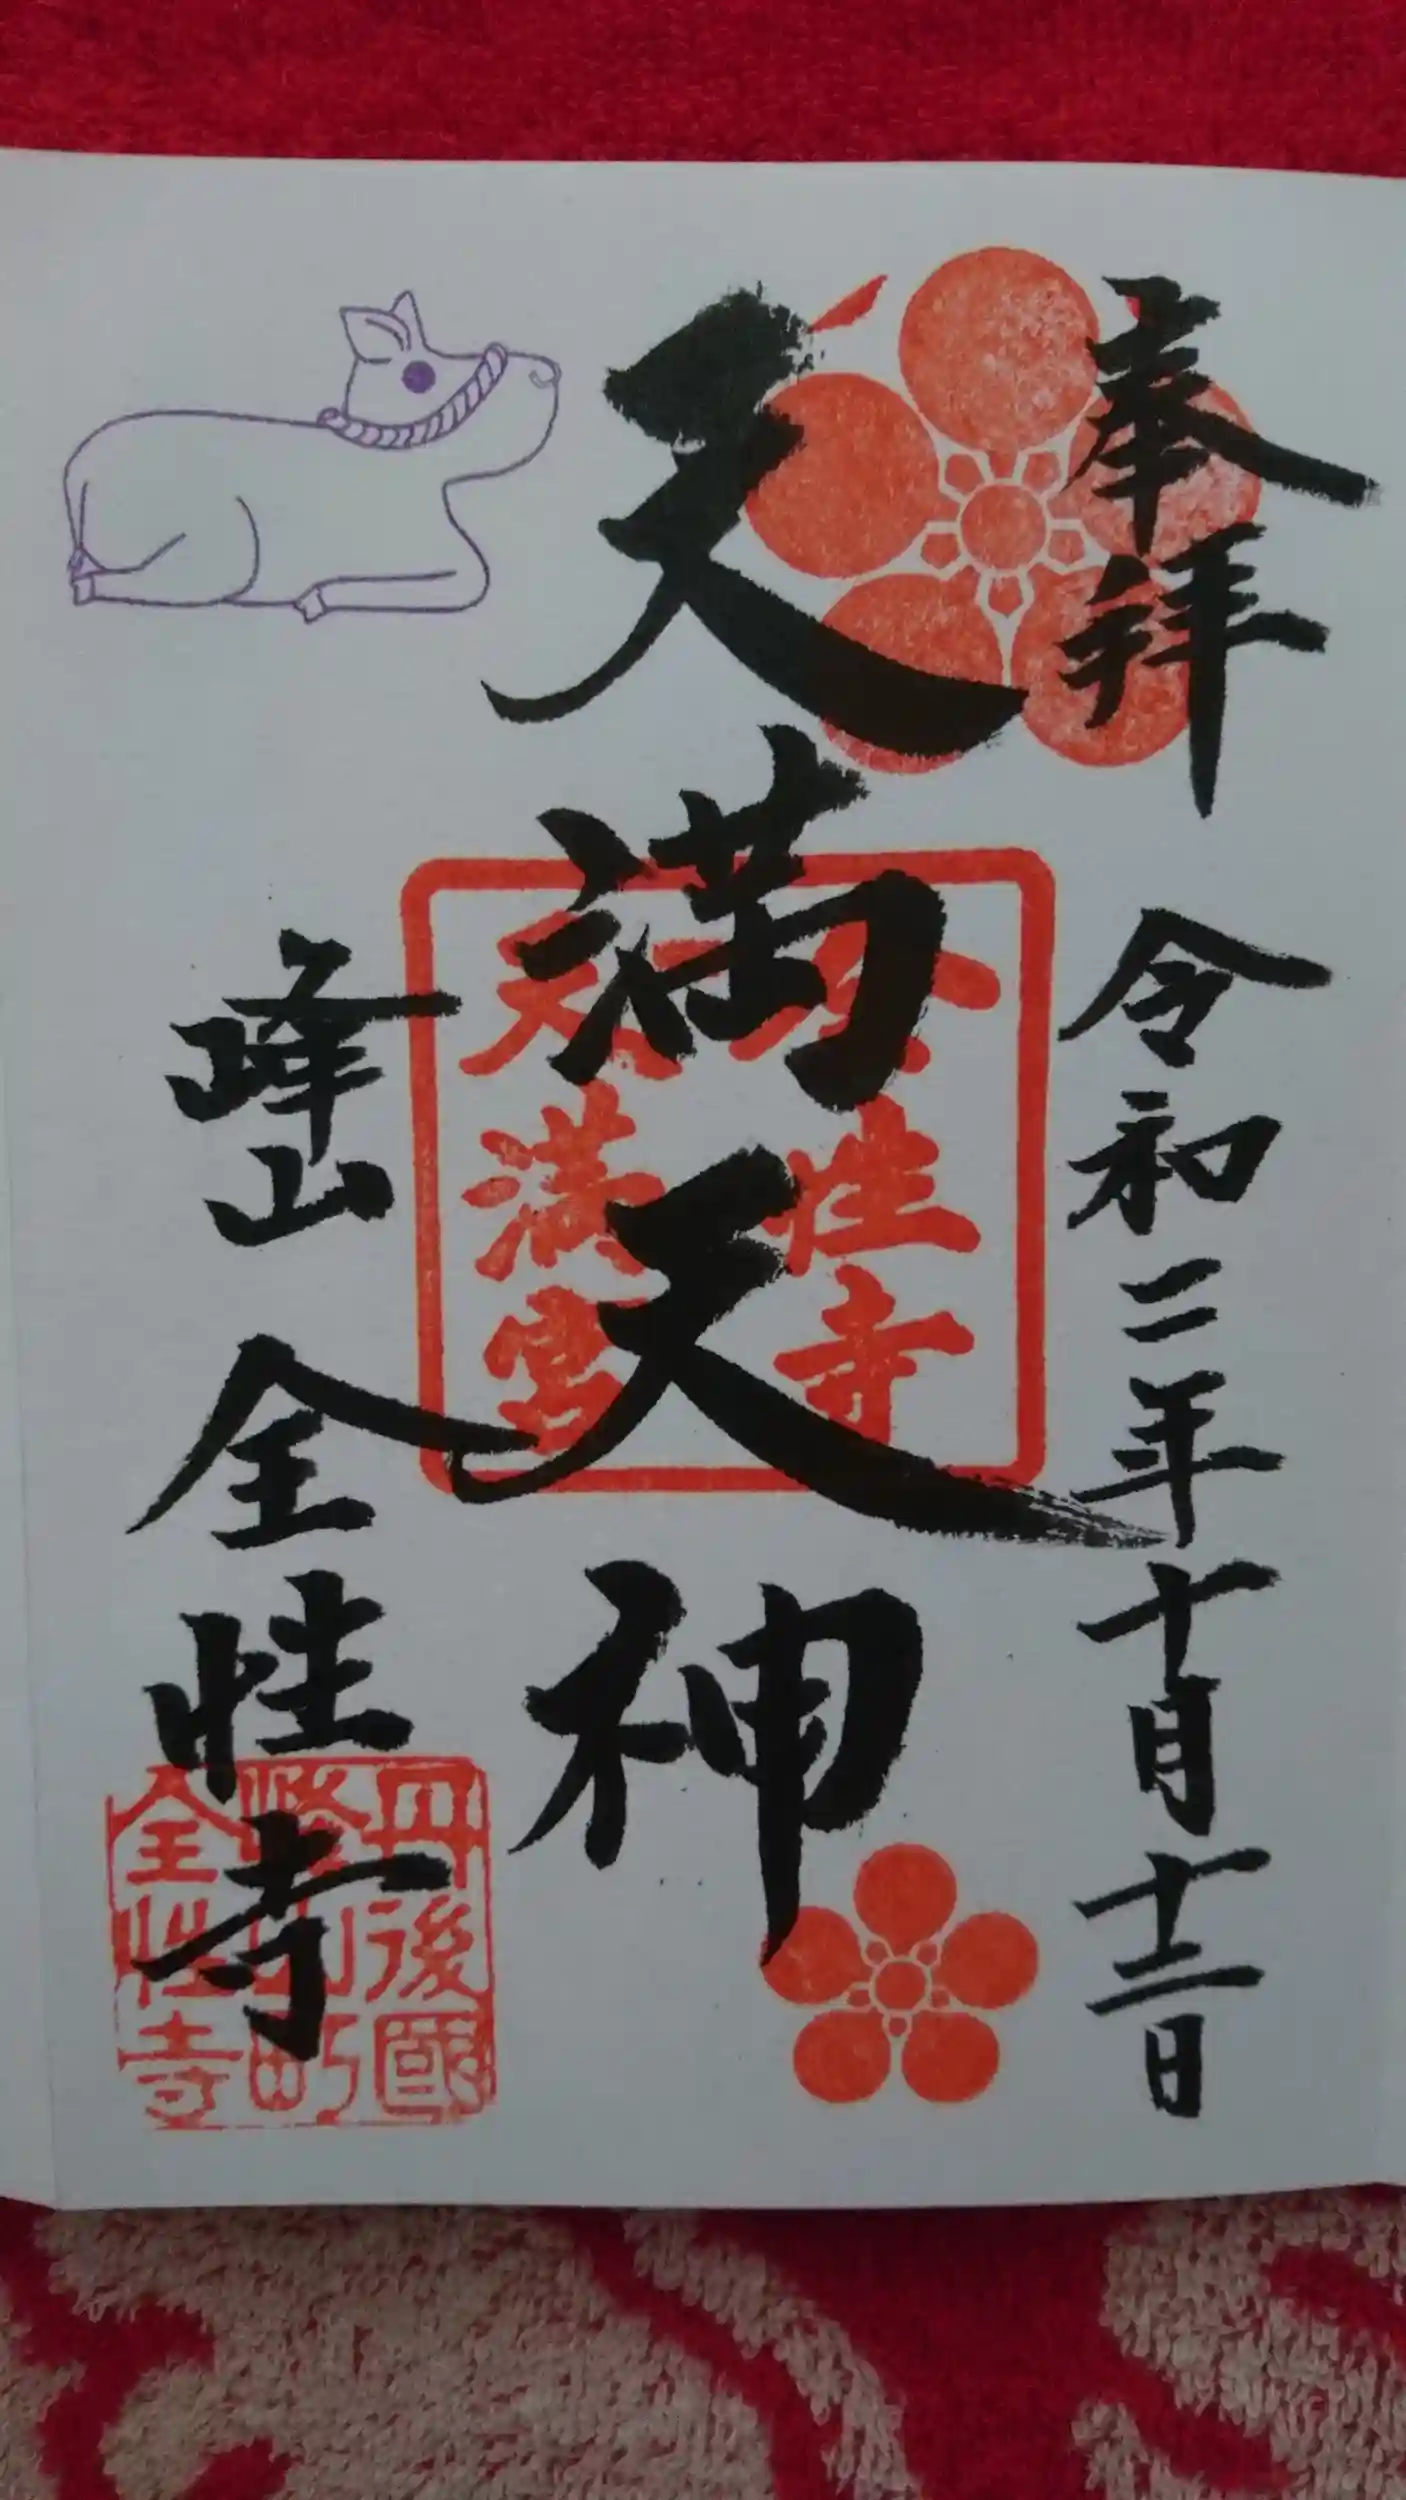 奉拝
令和二年十月十二日
天満天神
全性寺
天満宮
峰山 全性寺
丹後國
峰山町
全性寺